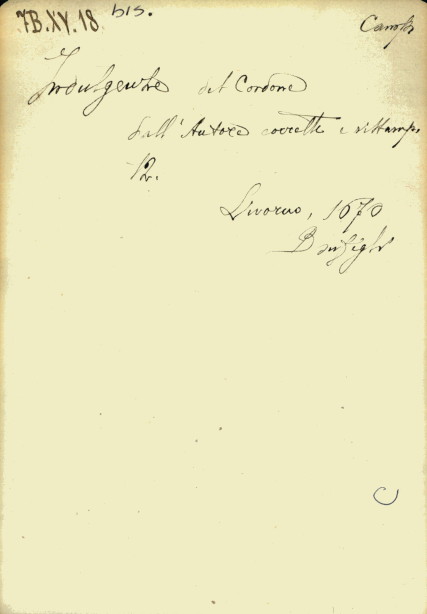 7B.XV.18 bis.
Indulgenze del Cordone
dall'Autore corrette e ristamp.
12.
Livorno, 1670
C